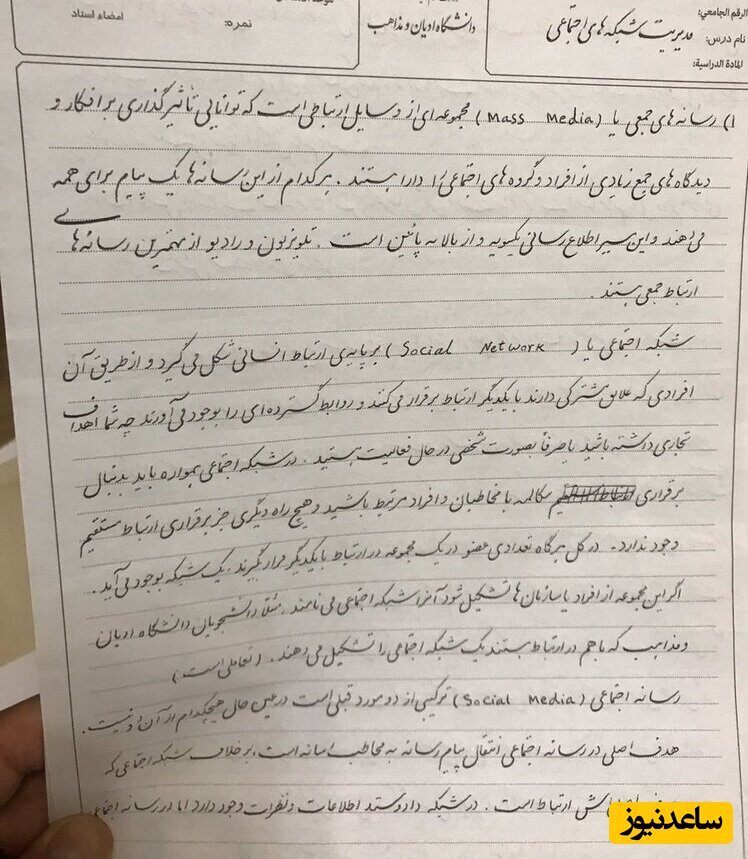 الرقم الجامعي:
نام درس: مدیریت شبکه های اجتماعی
المادة الدراسیة:
دانشگاه ادیان و مذاهب
نمره:
امضاء استاد
۱) رسانه های جمعی یا (Mass Media) مجموعه ای از وسایل ارتباطی است که توانایی تأثیرگذاری بر افکار و
دیدگاه های جمع زیادی از افراد و گروه های اجتماعی را دارا هستند. هرکدام از این رسانه ها یک پیام برای همه
می دهند و این سیر اطلاع رسانی یکسویه و از بالا به پائین است. تلویزیون و رادیو از مهمترین رسانه های
ارتباط جمعی هستند.
شبکه اجتماعی یا (Social Network) بر پایه ی ارتباط انسانی شکل می گیرد و از طریق آن
افرادی که علایق مشترکی دارند با یکدیگر ارتباط برقرار می کنند و روابط گسترده ای را بوجود می آورند چه شما اهداف
تجاری داشته باشید یا صرفاً بصورت شخصی در حال فعالیت هستید. در شبکه اجتماعی همواره باید بدنبال
برقراری مکالمه با مخاطبان و افراد مرتبط باشید و هیچ راه دیگری جز برقراری ارتباط مستقیم
وجود ندارد. در کل هرگاه تعدادی عضو در یک مجموعه در ارتباط با یکدیگر قرار گیرند، یک شبکه بوجود می آید.
اگر این مجموعه از افراد یا سازمان ها تشکیل شود آنرا شبکه اجتماعی می نامند. مثلاً دانشجویان دانشگاه ادیان
و مذاهب که با هم در ارتباط هستند یک شبکه اجتماعی را تشکیل می دهند. (تعاملی است)
رسانه اجتماعی (Social Media) ترکیبی از دو مورد قبلی است در عین حال هیچکدام از آن دو نیست.
هدف اصلی در رسانه اجتماعی انتقال پیام رسانه به مخاطب است، برخلاف شبکه اجتماعی که
ارتباط است. در شبکه داد و ستد اطلاعات و نظرات وجود دارد اما در رسانه اجتماعی
ساعدنیوز